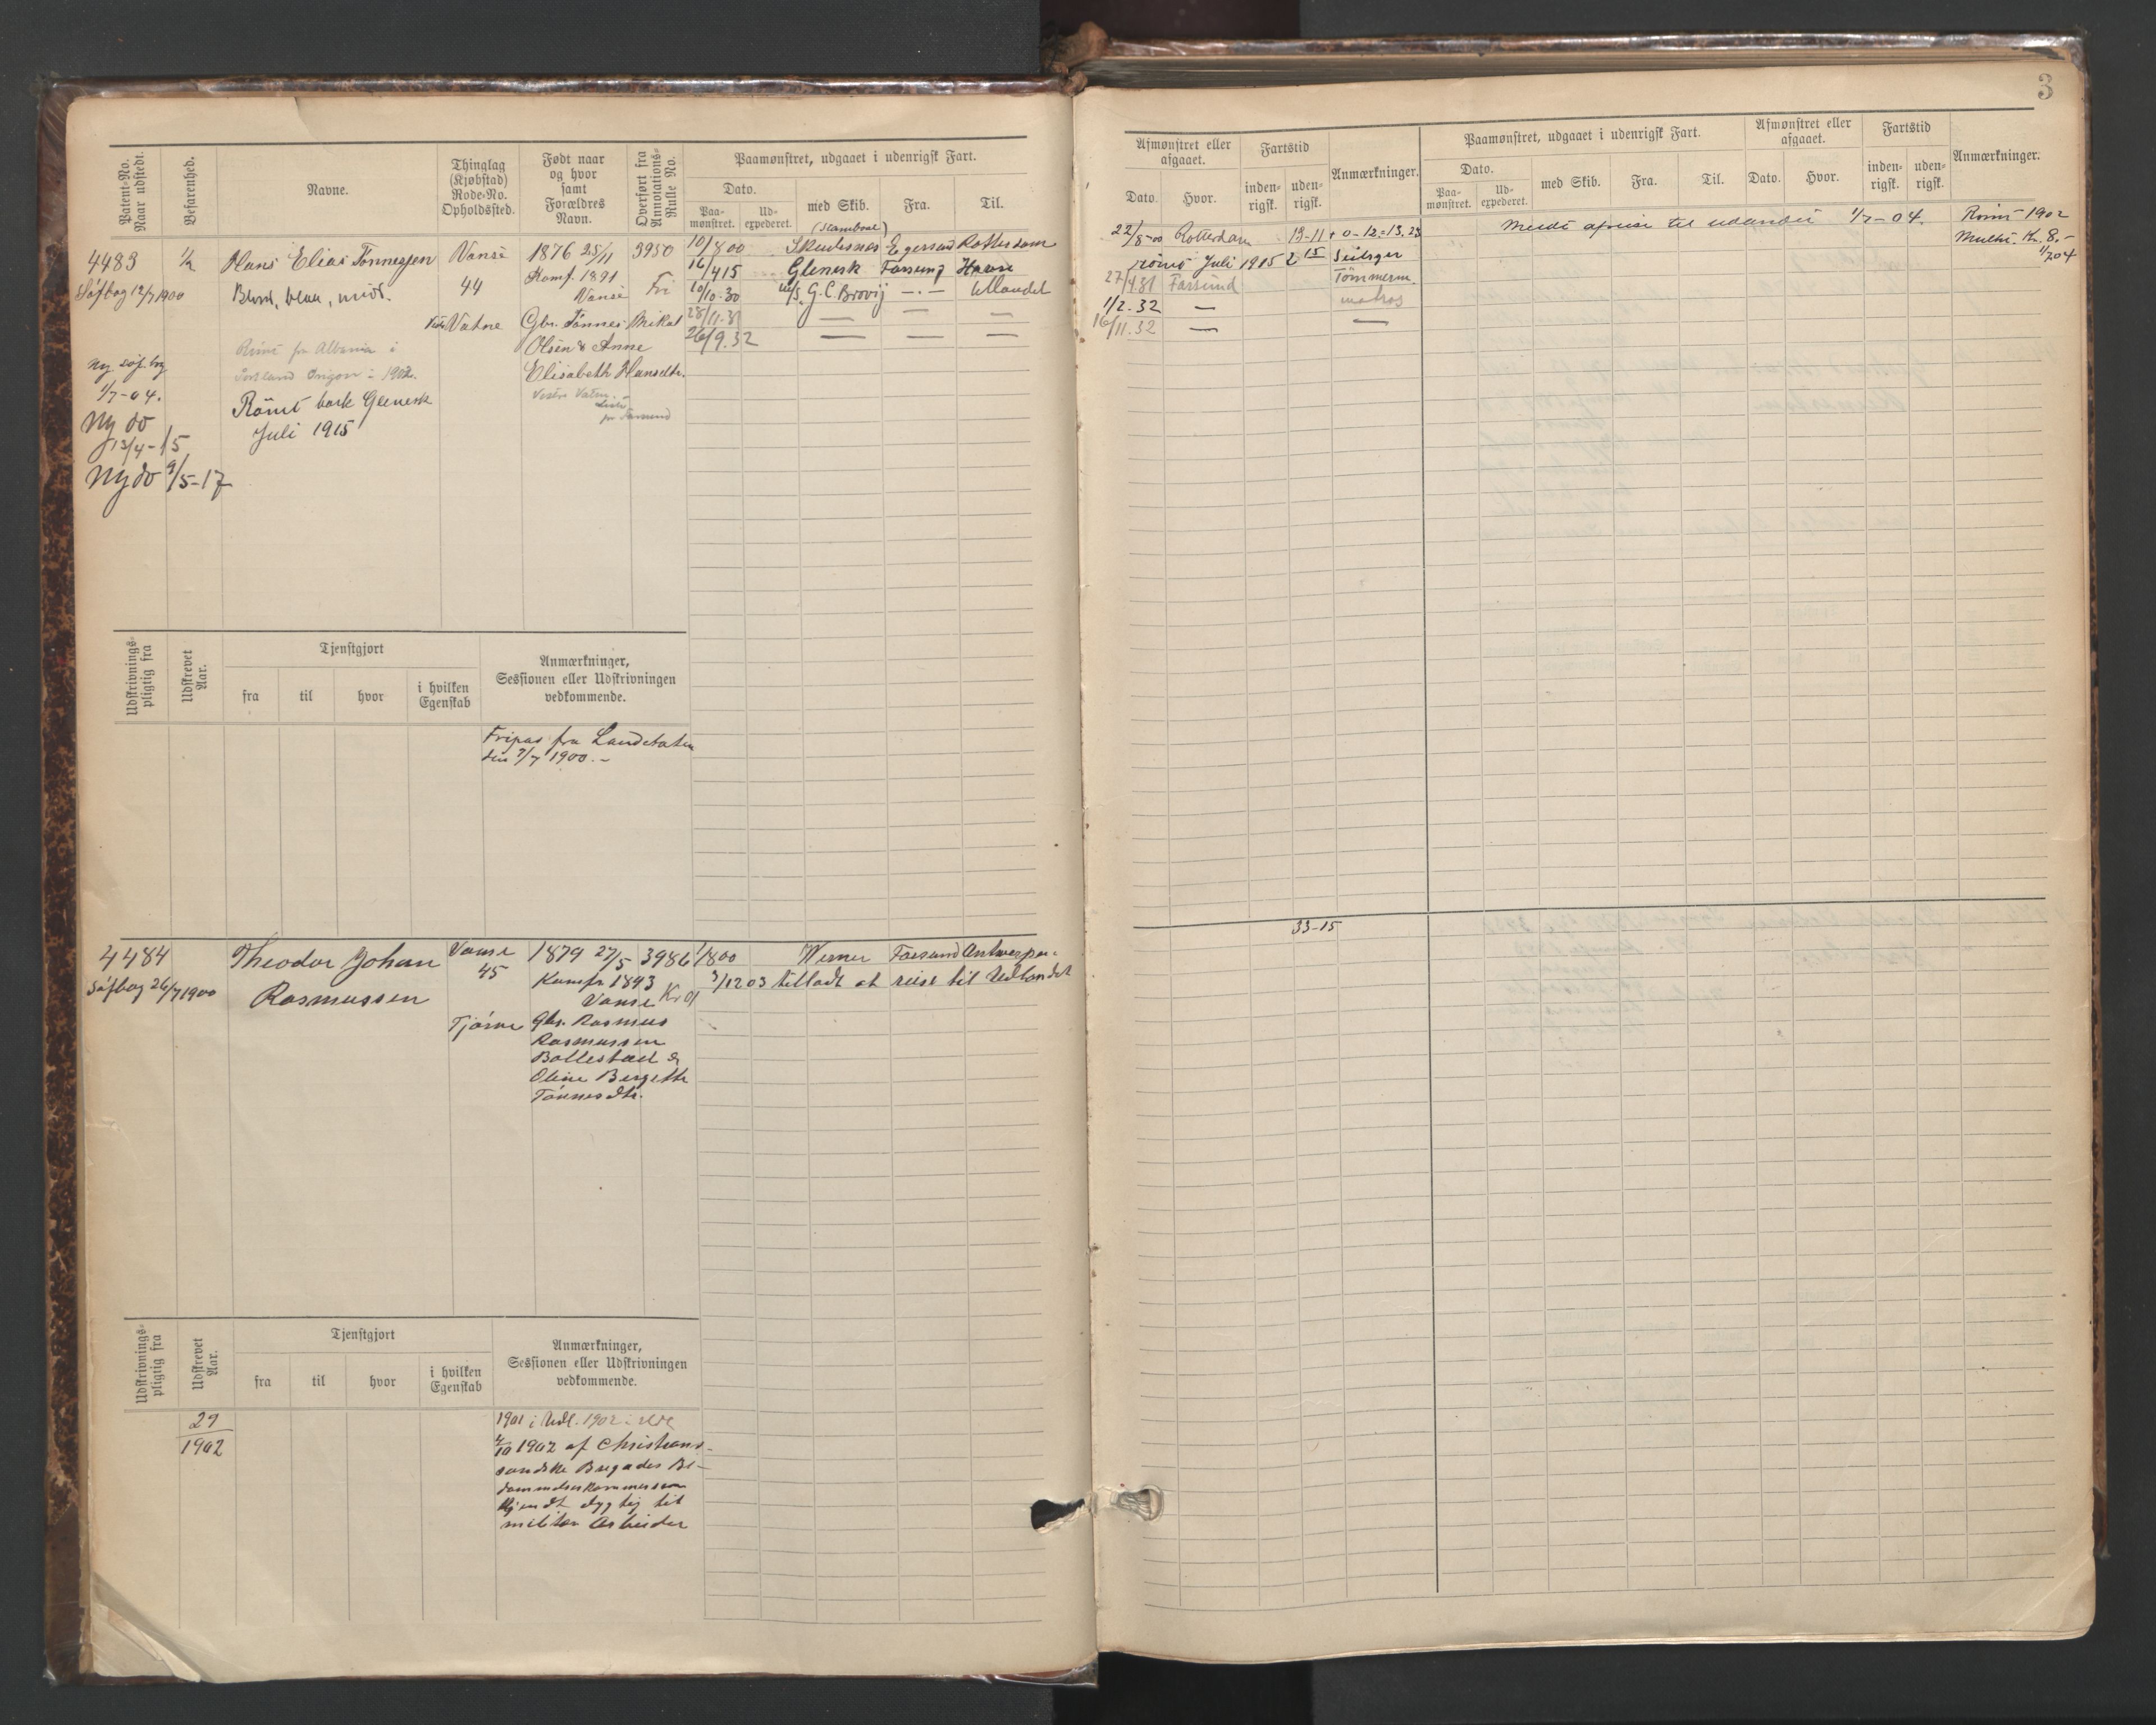 3
Patent-No. Naar udstedt.
Befarenhed.
Navne.
Thinglag (Kjøbstad) Rode-No. Opholdssted.
Født naar og hvor samt Forældres Navn.
Overført fra Annotations-Rulle No.
Paamønstret, udgaaet i udenrigsk Fart.
Dato.
Paa-mønstret.
Ud-expederet.
med Skib.
Fra.
Til.
4483
½
Hans Elias Tønnessen
Vanse
1876 25/11
3950
10/8 00
Skudesnes
Egersund
Rotterdam
Søfbog 12/7 1900
Blond, blaa, midd.
44
Konf. 1891
Vanse
Fri
16/4 15
Glenesk
Farsund
Havre
10/10-30
m/s G. C. Brovig
—.—
Utlandet
Vatne
Gbr. Tønnes Mikal
28/11.31
—
—
—
Olsen & Anne
26/9.32
—
—
—
Elisabeth Hansdtr.
Ny søf. bog
1/7-04.
Rømt fra Albania i
Portland Oregon i 1902.
Ny do
13/4-15
Rømt bark Glenesk
Juli 1915
Ny do 9/5-17
Vestre Vatne
Liste
pr Farsund
Udskrivnings-pligtig fra
Udskrevet Aar.
Tjenstgjort
fra
til
hvor
i hvilken Egenskab
Anmærkninger, Sessionen eller Udskrivningen vedkommende.
Fripas fra Landetaten
den 7/7 1900.-
4484
Theodor Johan
Rasmussen
Vanse
45
1879 27/5
3986
/8 00
Werner
Farsund
Antwerpen
Søfbog 26/7 1900
Konfr. 1893
Vanse
3/12 03 tilladt at reise til Udlandet
Tjørve
Gbr. Rasmus
Rasmussen
Bollestad &
Oline Bergette
Tønnesdtr.
Udskrivnings-pligtig fra
Udskrevet Aar.
Tjenstgjort
fra
til
hvor
i hvilken Egenskab
Anmærkninger, Sessionen eller Udskrivningen vedkommende.
29
1902
1901 i Udl. 1902 i
4/10 1902 af Christians-
sandske Brigades Be-
dømmelseskommission
kjendt dygtig til
militær Arbeider
Afmønstret eller afgaaet.
Dato.
Hvor.
Fartstid
inden-rigsk.
uden-rigsk.
Anmærkninger.
Paamønstret, udgaaet i udenrigsk Fart.
Dato.
Paa-mønstret.
Ud-expederet.
med Skib.
Fra.
Til.
Afmønstret eller afgaaet.
Dato.
Hvor.
Fartstid
inden-rigsk.
uden-rigsk.
Anmærkninger.
22/8-00
Rotterdam
13-11 + 0-12 = 13.23
Meldt afreise til udlandet 1/7-04.
Rømt 1902
Mulkt. Kr. 8.-
1/7 04
rømt Juli 1915
2 15
Seilsger
27/4.31
Farsund
Tømmerm.
1/2.32
—
matros
16/11.32
—
—
33-15